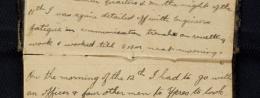 quarters & on the night of the
11th I was again detailed off with Engineers
fatigue in communication trench on
work & worked till 2 am next morning.
On the morning of the 12th I had to go with
an Officer & four other men to Ypres to look